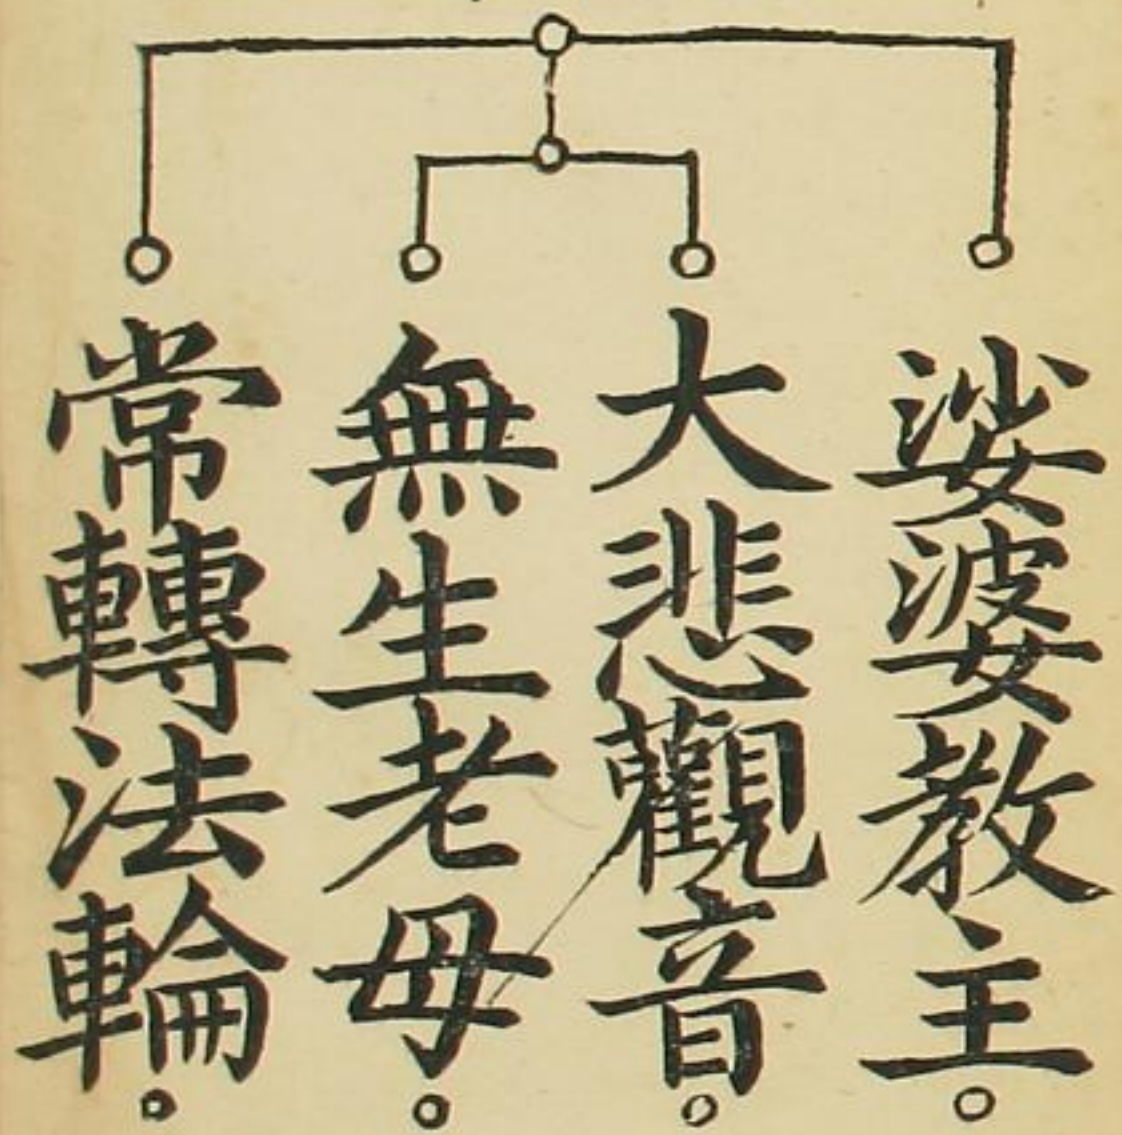 娑婆教主
大悲觀音
無生老母
常轉法輪